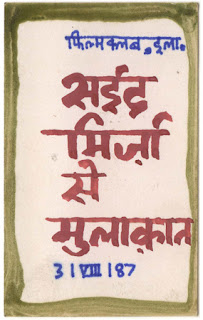 फिल्म क्लब, डूला.
सईद
मिर्ज़ा
से
मुलाक़ात
31 VIII 87